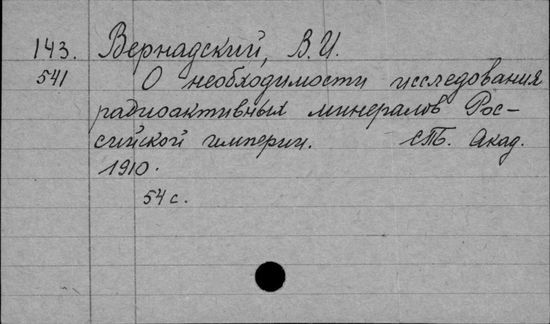 143. Вернадский, В.И.
541 О необходимости исследования
радиоактивных минералов Рос-
сийской империи. СПб. Акад.
1910.
54 с.